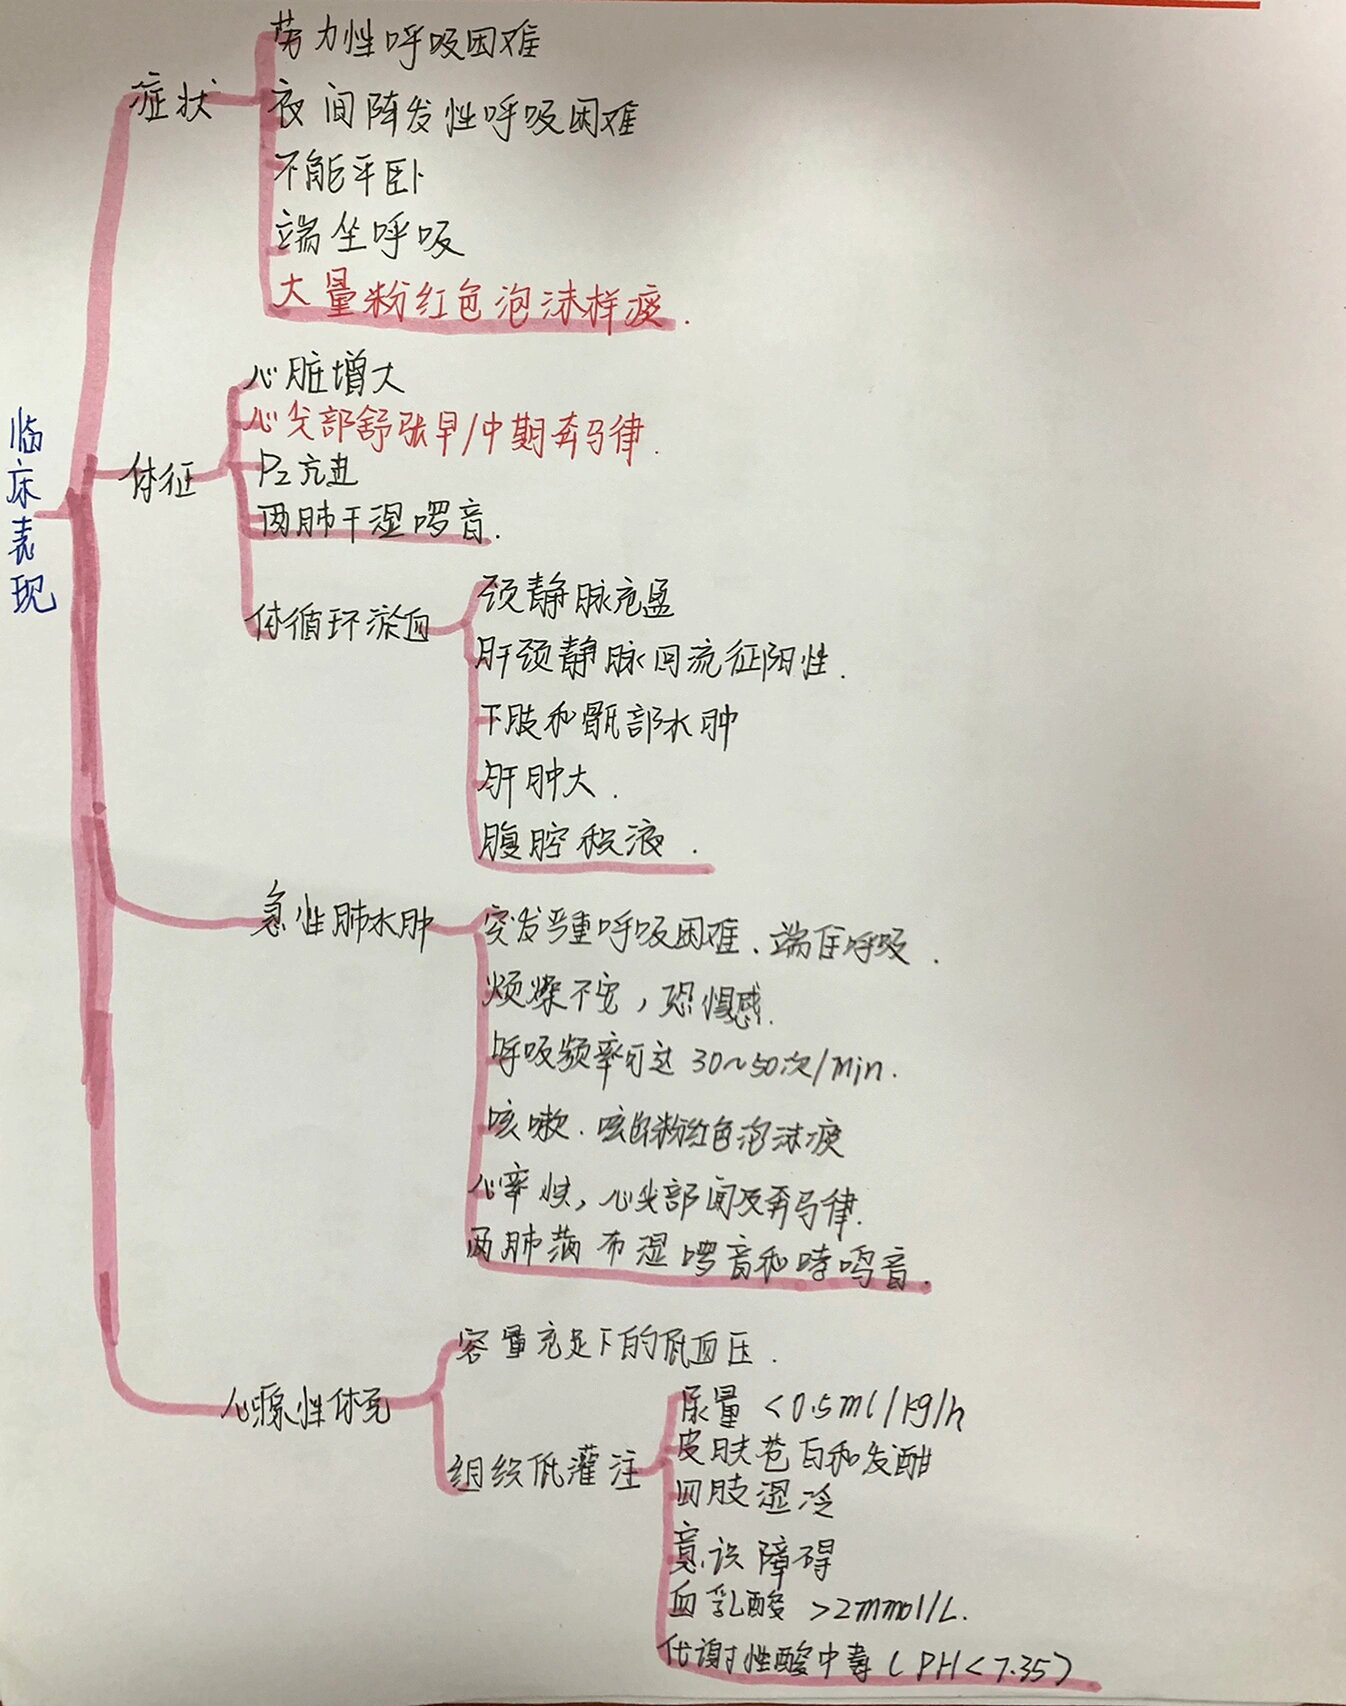 临床表现
症状
劳力性呼吸困难
夜间阵发性呼吸困难
不能平卧
端坐呼吸
大量粉红色泡沫样痰.
体征
心脏增大
心尖部舒张早/中期奔马律.
P2亢进
两肺干湿啰音.
体循环淤血
颈静脉充盈
肝颈静脉回流征阳性.
下肢和骶部水肿
肝肿大.
腹腔积液.
急性肺水肿
突发严重呼吸困难、端坐呼吸.
烦燥不安,恐惧感.
呼吸频率可达30~50次/min.
咳嗽.咳出粉红色泡沫痰
心率快,心尖部闻及奔马律.
两肺满布湿啰音和哮鸣音.
心源性休克
容量充足下的低血压.
组织低灌注
尿量<0.5ml/kg/h
皮肤苍白和发酣
四肢湿冷
意识障碍
血乳酸>2mmol/L.
代谢性酸中毒(PH<7.35)